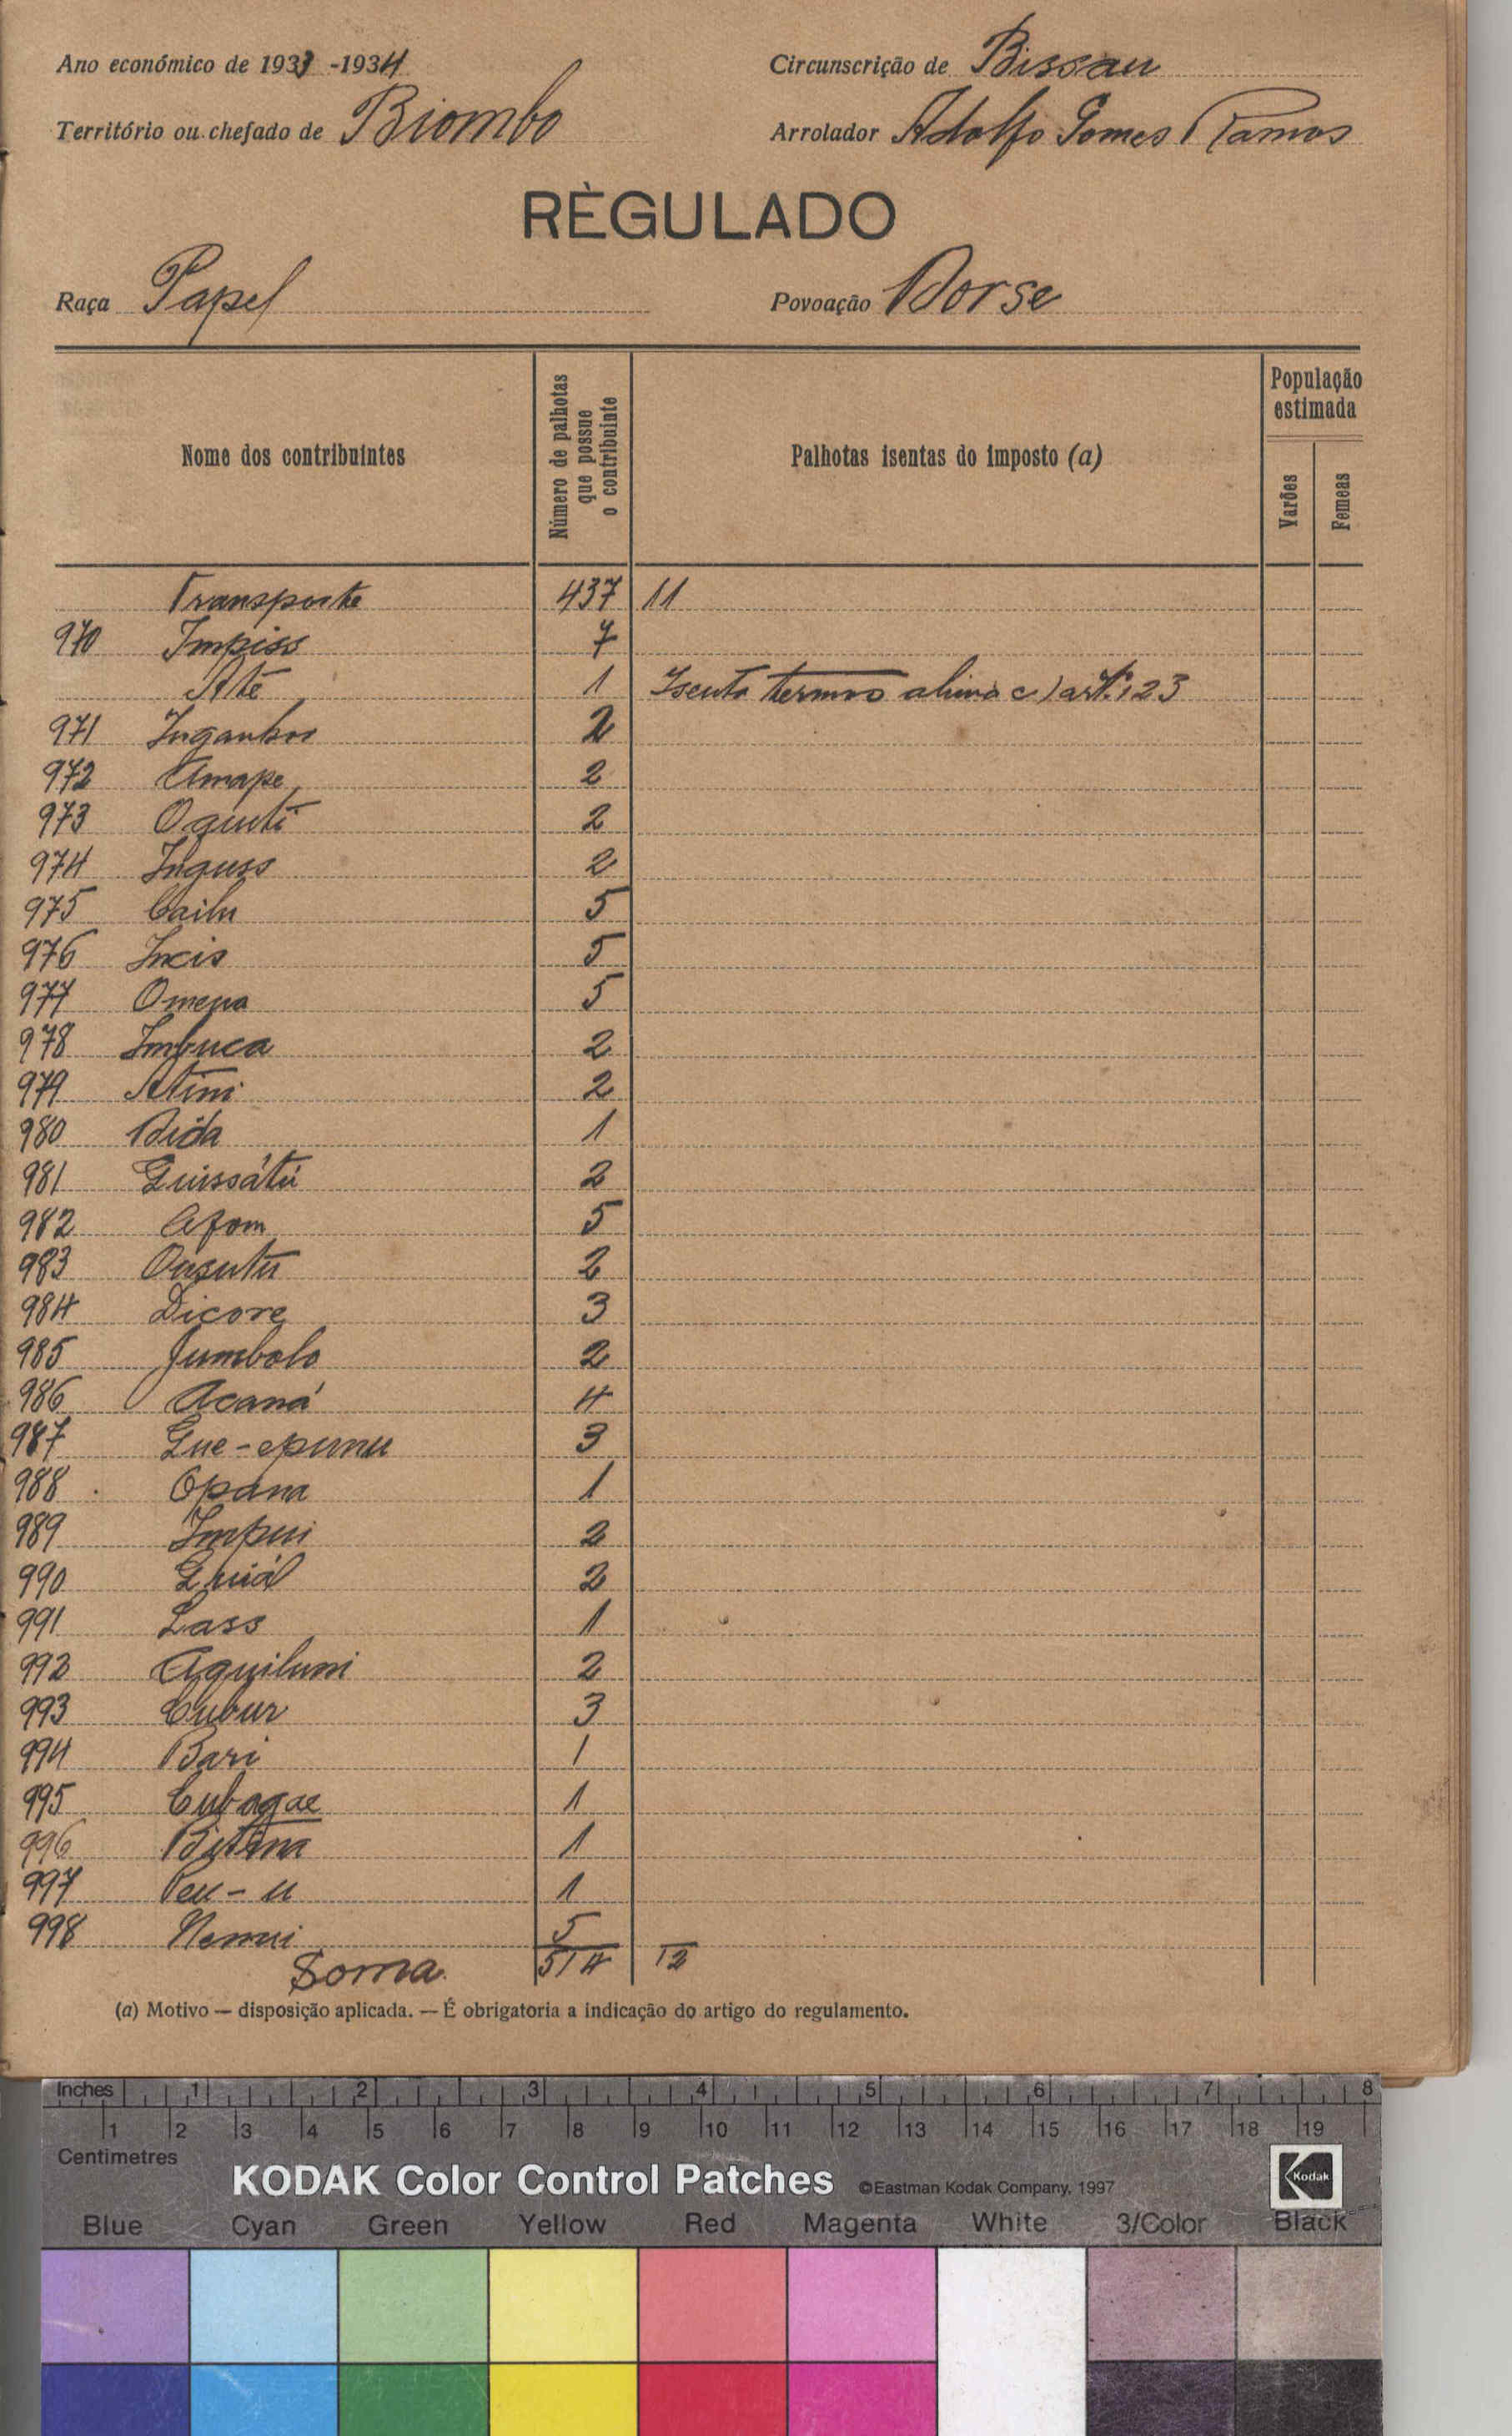 Ano económico de 1933 -1934
Circunscrição de Bissau
Território ou chefado de Biombo
Arrolador Adolfo Gomes Ramos
RÈGULADO
Raça Papel
Povoação Dorse
Nome dos contribuintes
Número de palhotas que possue o contribuinte
Palhotas isentas do imposto (a)
População estimada
Varões
Femeas
Transporte 437 11
970 Impiss 7
Até 1 Isento termos alinea c) artº 123
971 2
972 Amape 2
973 2
974 Inguss 2
975 Cailu 5
976 Incis 5
977 5
978 Imbuca 2
979 Atini 2
980 Dida 1
981 Guissátú 2
982 Afom 5
983 2
984 Dicore 3
985 Jumbolo 2
986 Acaná 4
987 Gue-epunu 3
988 Opana 1
989 Impui 2
990 2
991 Lass 1
992 Aquilumi 2
993 3
994 Bari 1
995 1
996 1
997 Peu-u 1
998 5
Soma 514 12
(a) Motivo — disposição aplicada. — É obrigatoria a indicação do artigo do regulamento.
Inches 1 2 3 4 5 6 7 8
1 2 3 4 5 6 7 8 9 10 11 12 13 14 15 16 17 18 19
Centimetres
KODAK Color Control Patches ©Eastman Kodak Company, 1997 Kodak
Blue Cyan Green Yellow Red Magenta White 3/Color Black